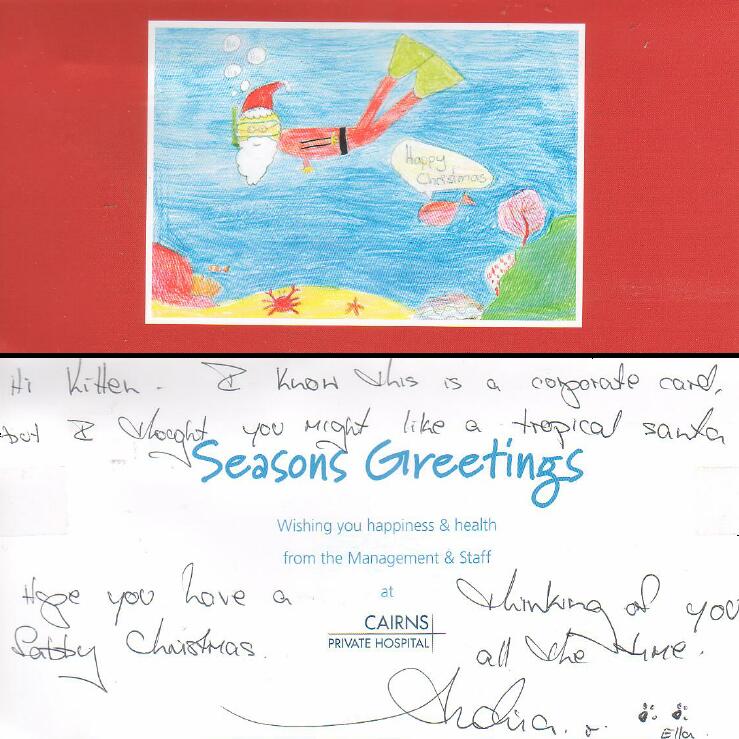 Happy
Christmas
Hi Kitten. I know this is a corporate card,
but I thought you might like a tropical santa
Seasons Greetings
Wishing you happiness & health
from the Management & Staff
at
CAIRNS
PRIVATE HOSPITAL
Hope you have a
fabby Christmas.
Thinking of you
all the time.
Ella